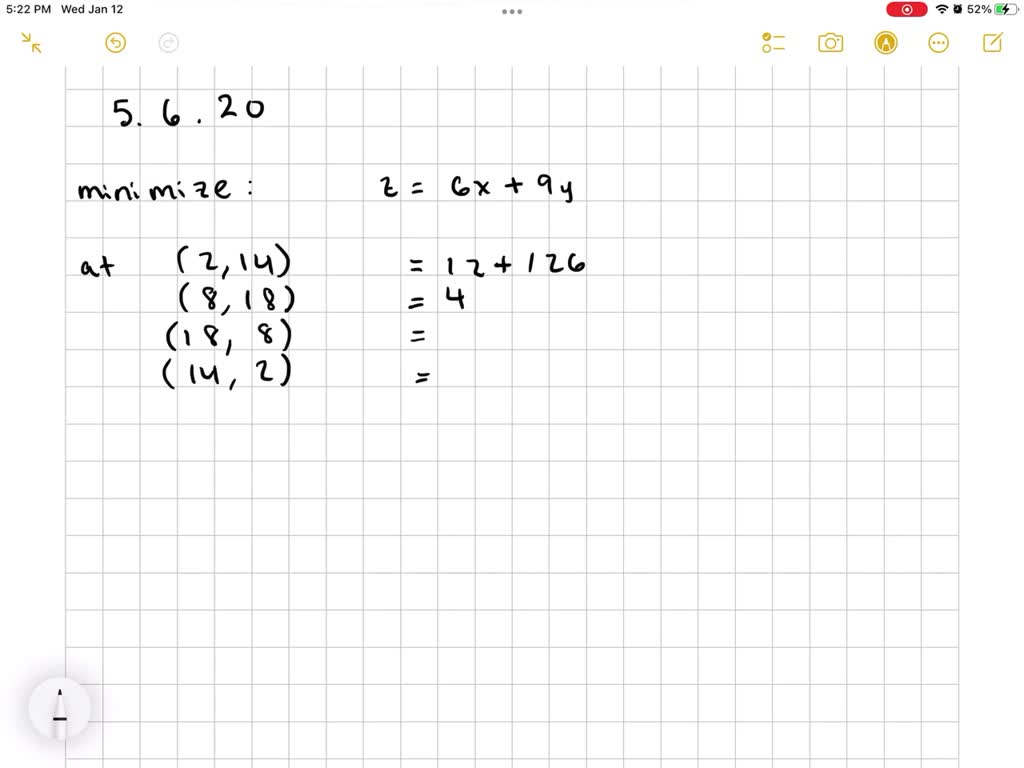 5:22 PM Wed Jan 12 52%
5. 6. 20
minimize: z = 6x + 9y
at (2, 14) = 12 + 126
(8, 18) = 4
(18, 8) =
(14, 2) =